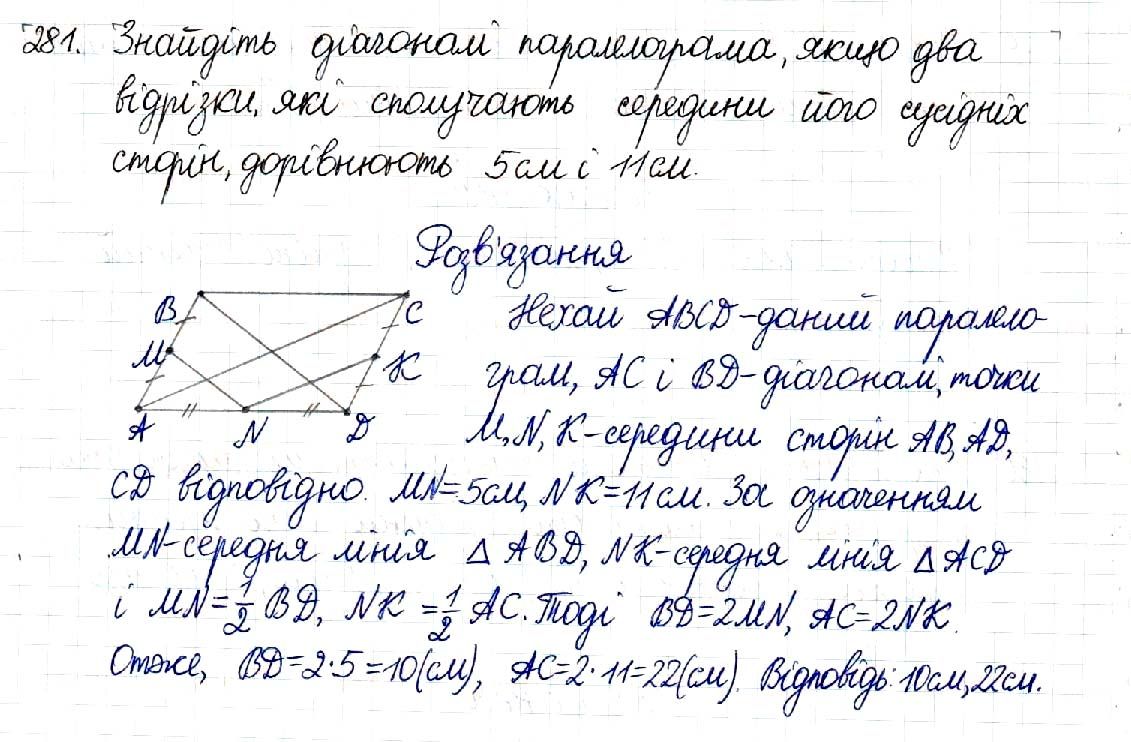 281. Знайдіть діагоналі паралелограма, якщо два
відрізки, які сполучають середини його сусідніх
сторін, дорівнюють 5 см і 11 см.
Розв'язання
B
C
M
K
A
N
D
Нехай ABCD-даний парало-
грам, AC і BD-діагоналі, точки
M, N, K-середини сторін AB, AD,
CD відповідно. MN=5см, NK=11см. За означенням
MN-середня лінія △ ABD, NK-середня лінія △ ACD
і MN=1/2 BD, NK =1/2 AC. Тоді BD=2MN, AC=2NK.
Отже, BD=2·5=10(см), AC=2·11=22(см). Відповідь: 10см, 22см.